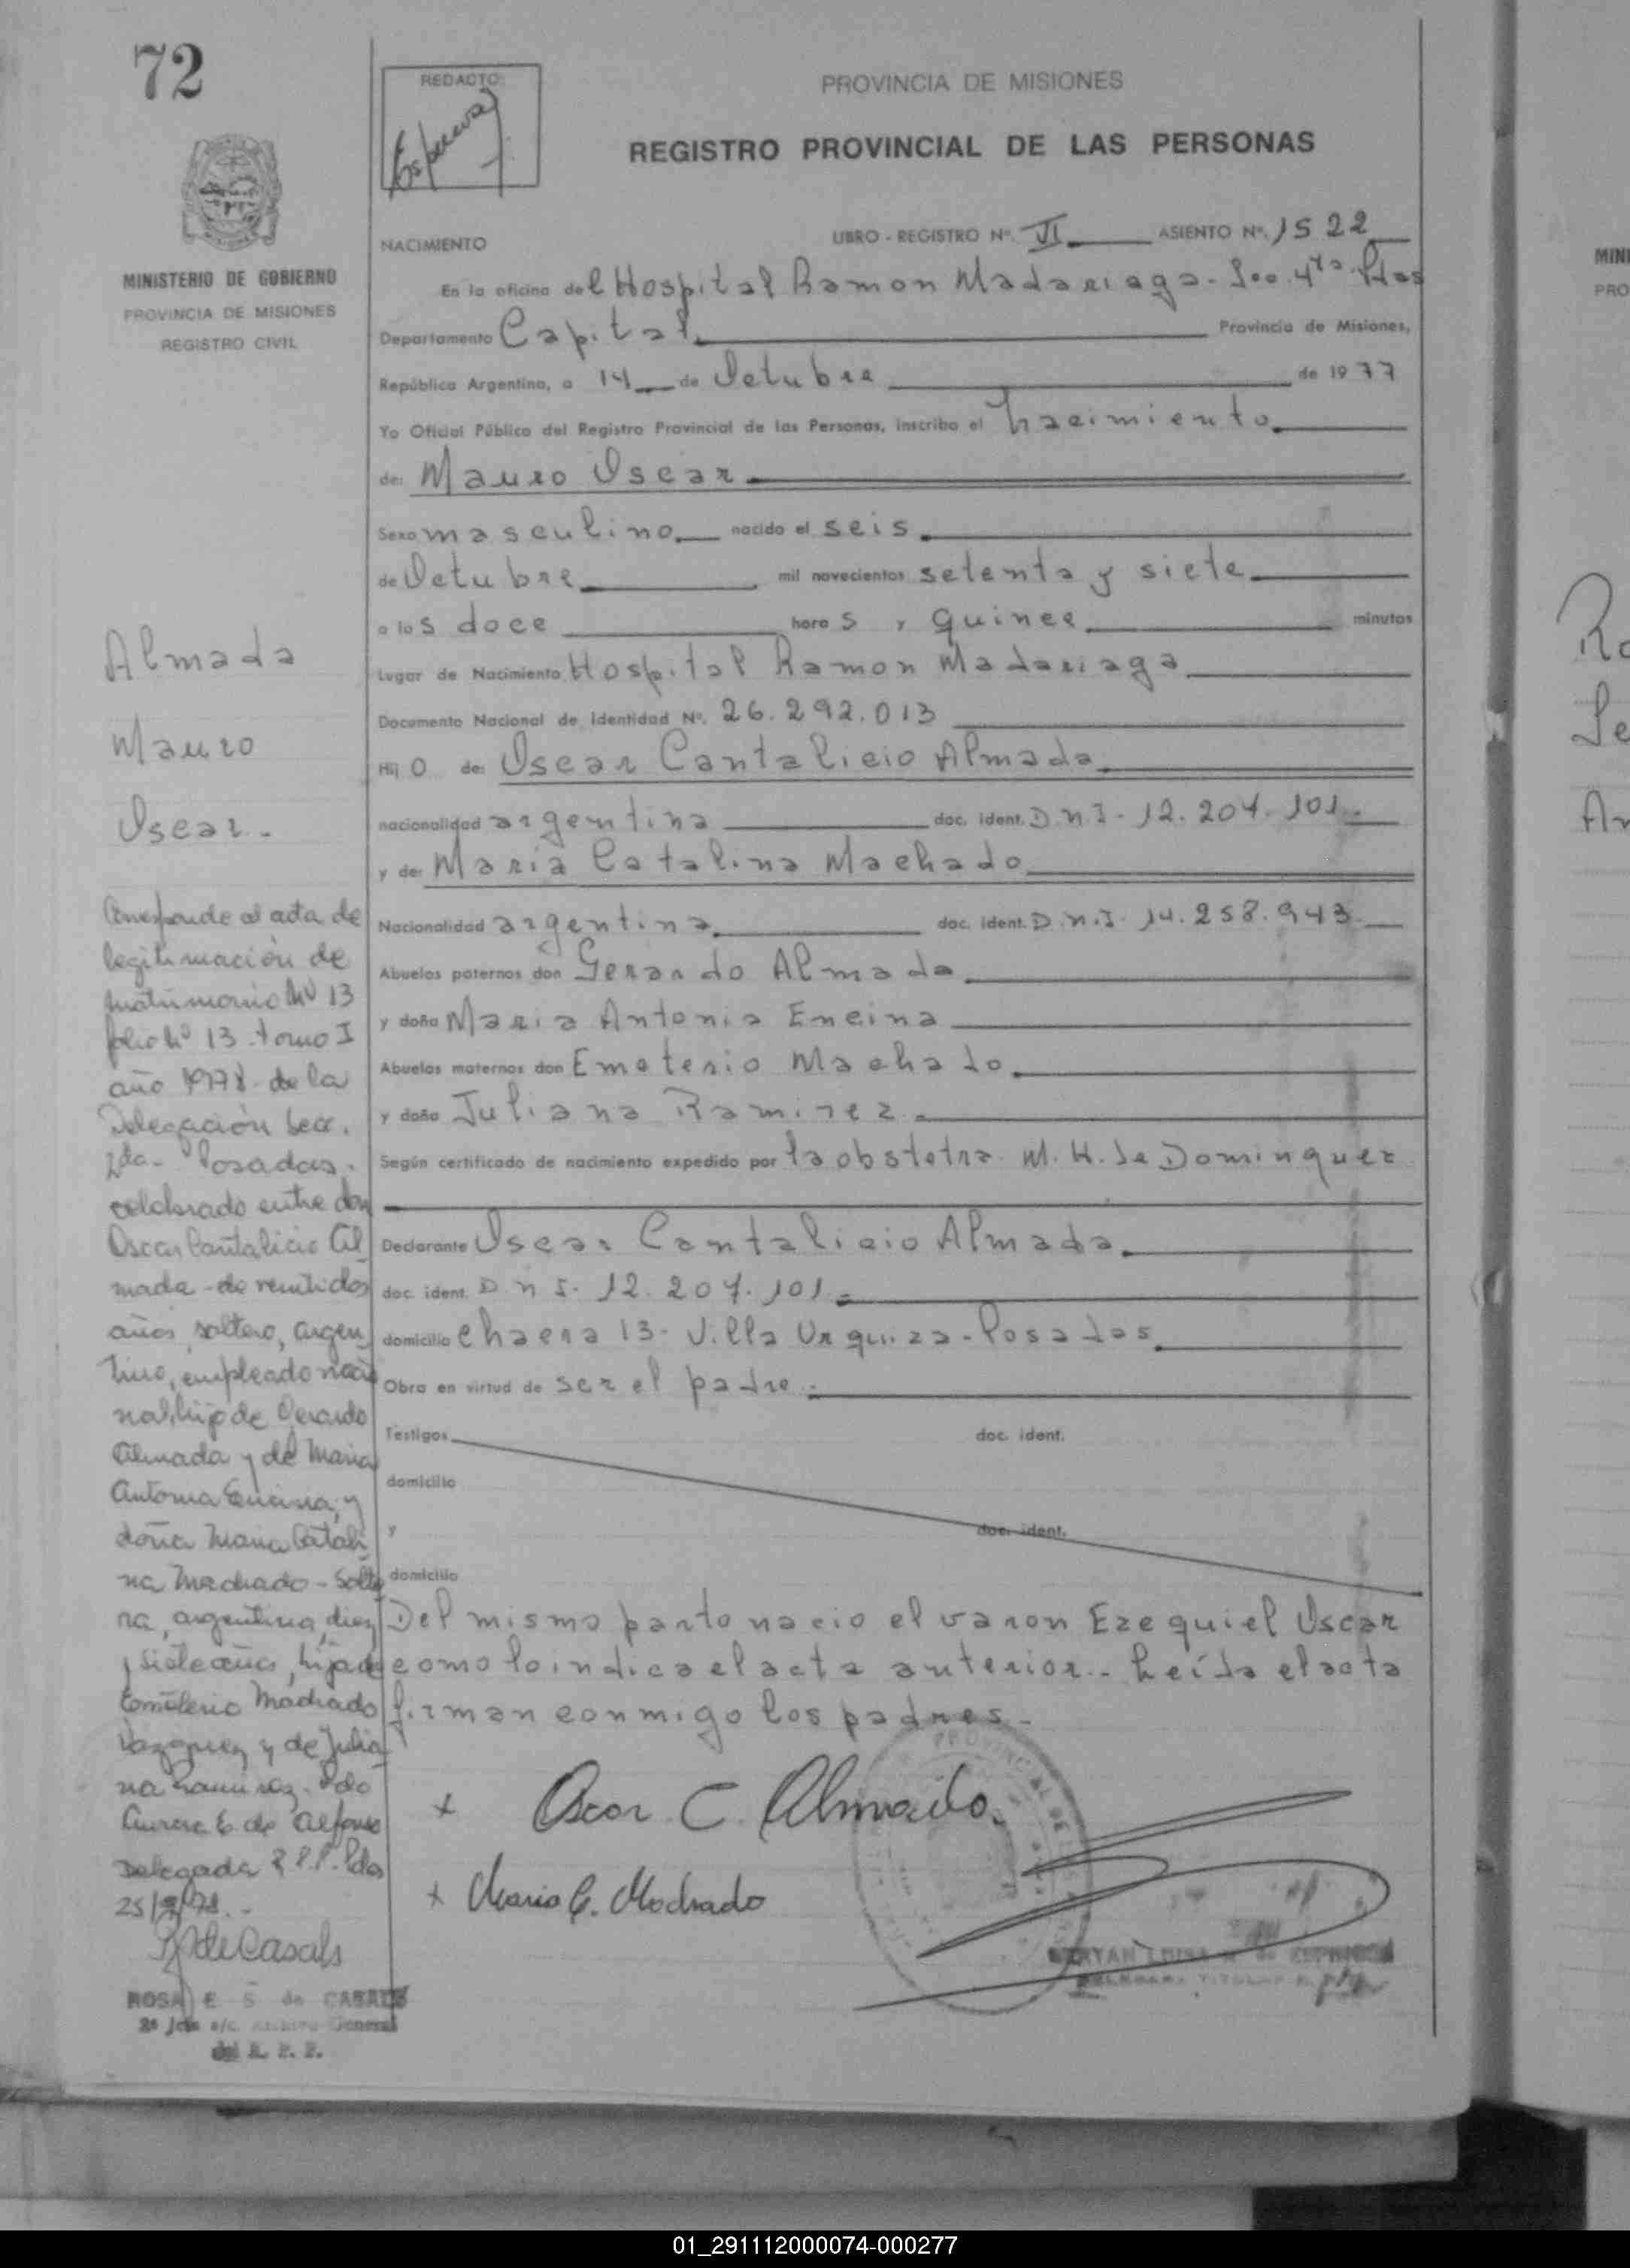 72
REDACTO:
PROVINCIA DE MISIONES
REGISTRO PROVINCIAL DE LAS PERSONAS
MINISTERIO DE GOBIERNO
PROVINCIA DE MISIONES
REGISTRO CIVIL
NACIMIENTO
LIBRO - REGISTRO Nº. VI ASIENTO Nº. 1522
En la oficina del Hospital Ramon Madariaga - Sec. 4ta. Pdas
Departamento Capital. Provincia de Misiones,
República Argentina, a 14 de Octubre de 1977
Yo Oficial Público del Registro Provincial de las Personas, inscribo el nacimiento.
de: Mauro Oscar.
Sexo masculino. nacido el seis.
de Octubre. mil novecientos setenta y siete.
a las doce horas y quince. minutos
Lugar de Nacimiento Hospital Ramon Madariaga.
Documento Nacional de Identidad Nº. 26.292.013
Hijo de: Oscar Cantalicio Almada.
nacionalidad argentina doc. ident. D.N.I. 12.207.101.
y de: Maria Catalina Machado
Nacionalidad argentina. doc. ident. D.N.I. 14.258.943.
Abuelos paternos don Gerardo Almada.
y doña Maria Antonia Encina
Abuelos maternos don Emeterio Machado.
y doña Juliana Ramirez.
Según certificado de nacimiento expedido por la obstetra M. H. de Dominguez
Declarante Oscar Cantalicio Almada.
doc. ident. D.N.I. 12.207.101.
domicilio Chacra 13 - Villa Urquiza - Posadas.
Obra en virtud de ser el padre.
Testigos doc. ident.
domicilio
y doc. ident.
domicilio
Del mismo parto nacio el varon Ezequiel Oscar
como lo indica el acta anterior.- Leída el acta
firman conmigo los padres.-
x Oscar C. Almada.
x Maria C. Machado
Almada
Mauro
Oscar.-
Corresponde al acta de
legitimación de
matrimonio Nº 13
folio Nº 13 tomo I
año 1978 de la
Delegación Secc.
2da. Posadas.
celebrado entre don
Oscar Cantalicio Al
mada - de veintidos
años, soltero, argen
tino, empleado nacio
nal, hijo de Gerardo
Almada y de Maria
Antonia Encina; y
doña Maria Catali
na Machado - Solte
ra, argentina, diez
y siete años, hija de
Emeterio Machado
Vazquez y de Julia
na Ramirez. Fdo
Aurora E. de Alfonso
Delegada R.P.P. Pdas
25/ /78.-
R de Casals
ROSA E S de CASALS
2º Jefe a/c. Archivo General
del R. P. P.
01_291112000074-000277